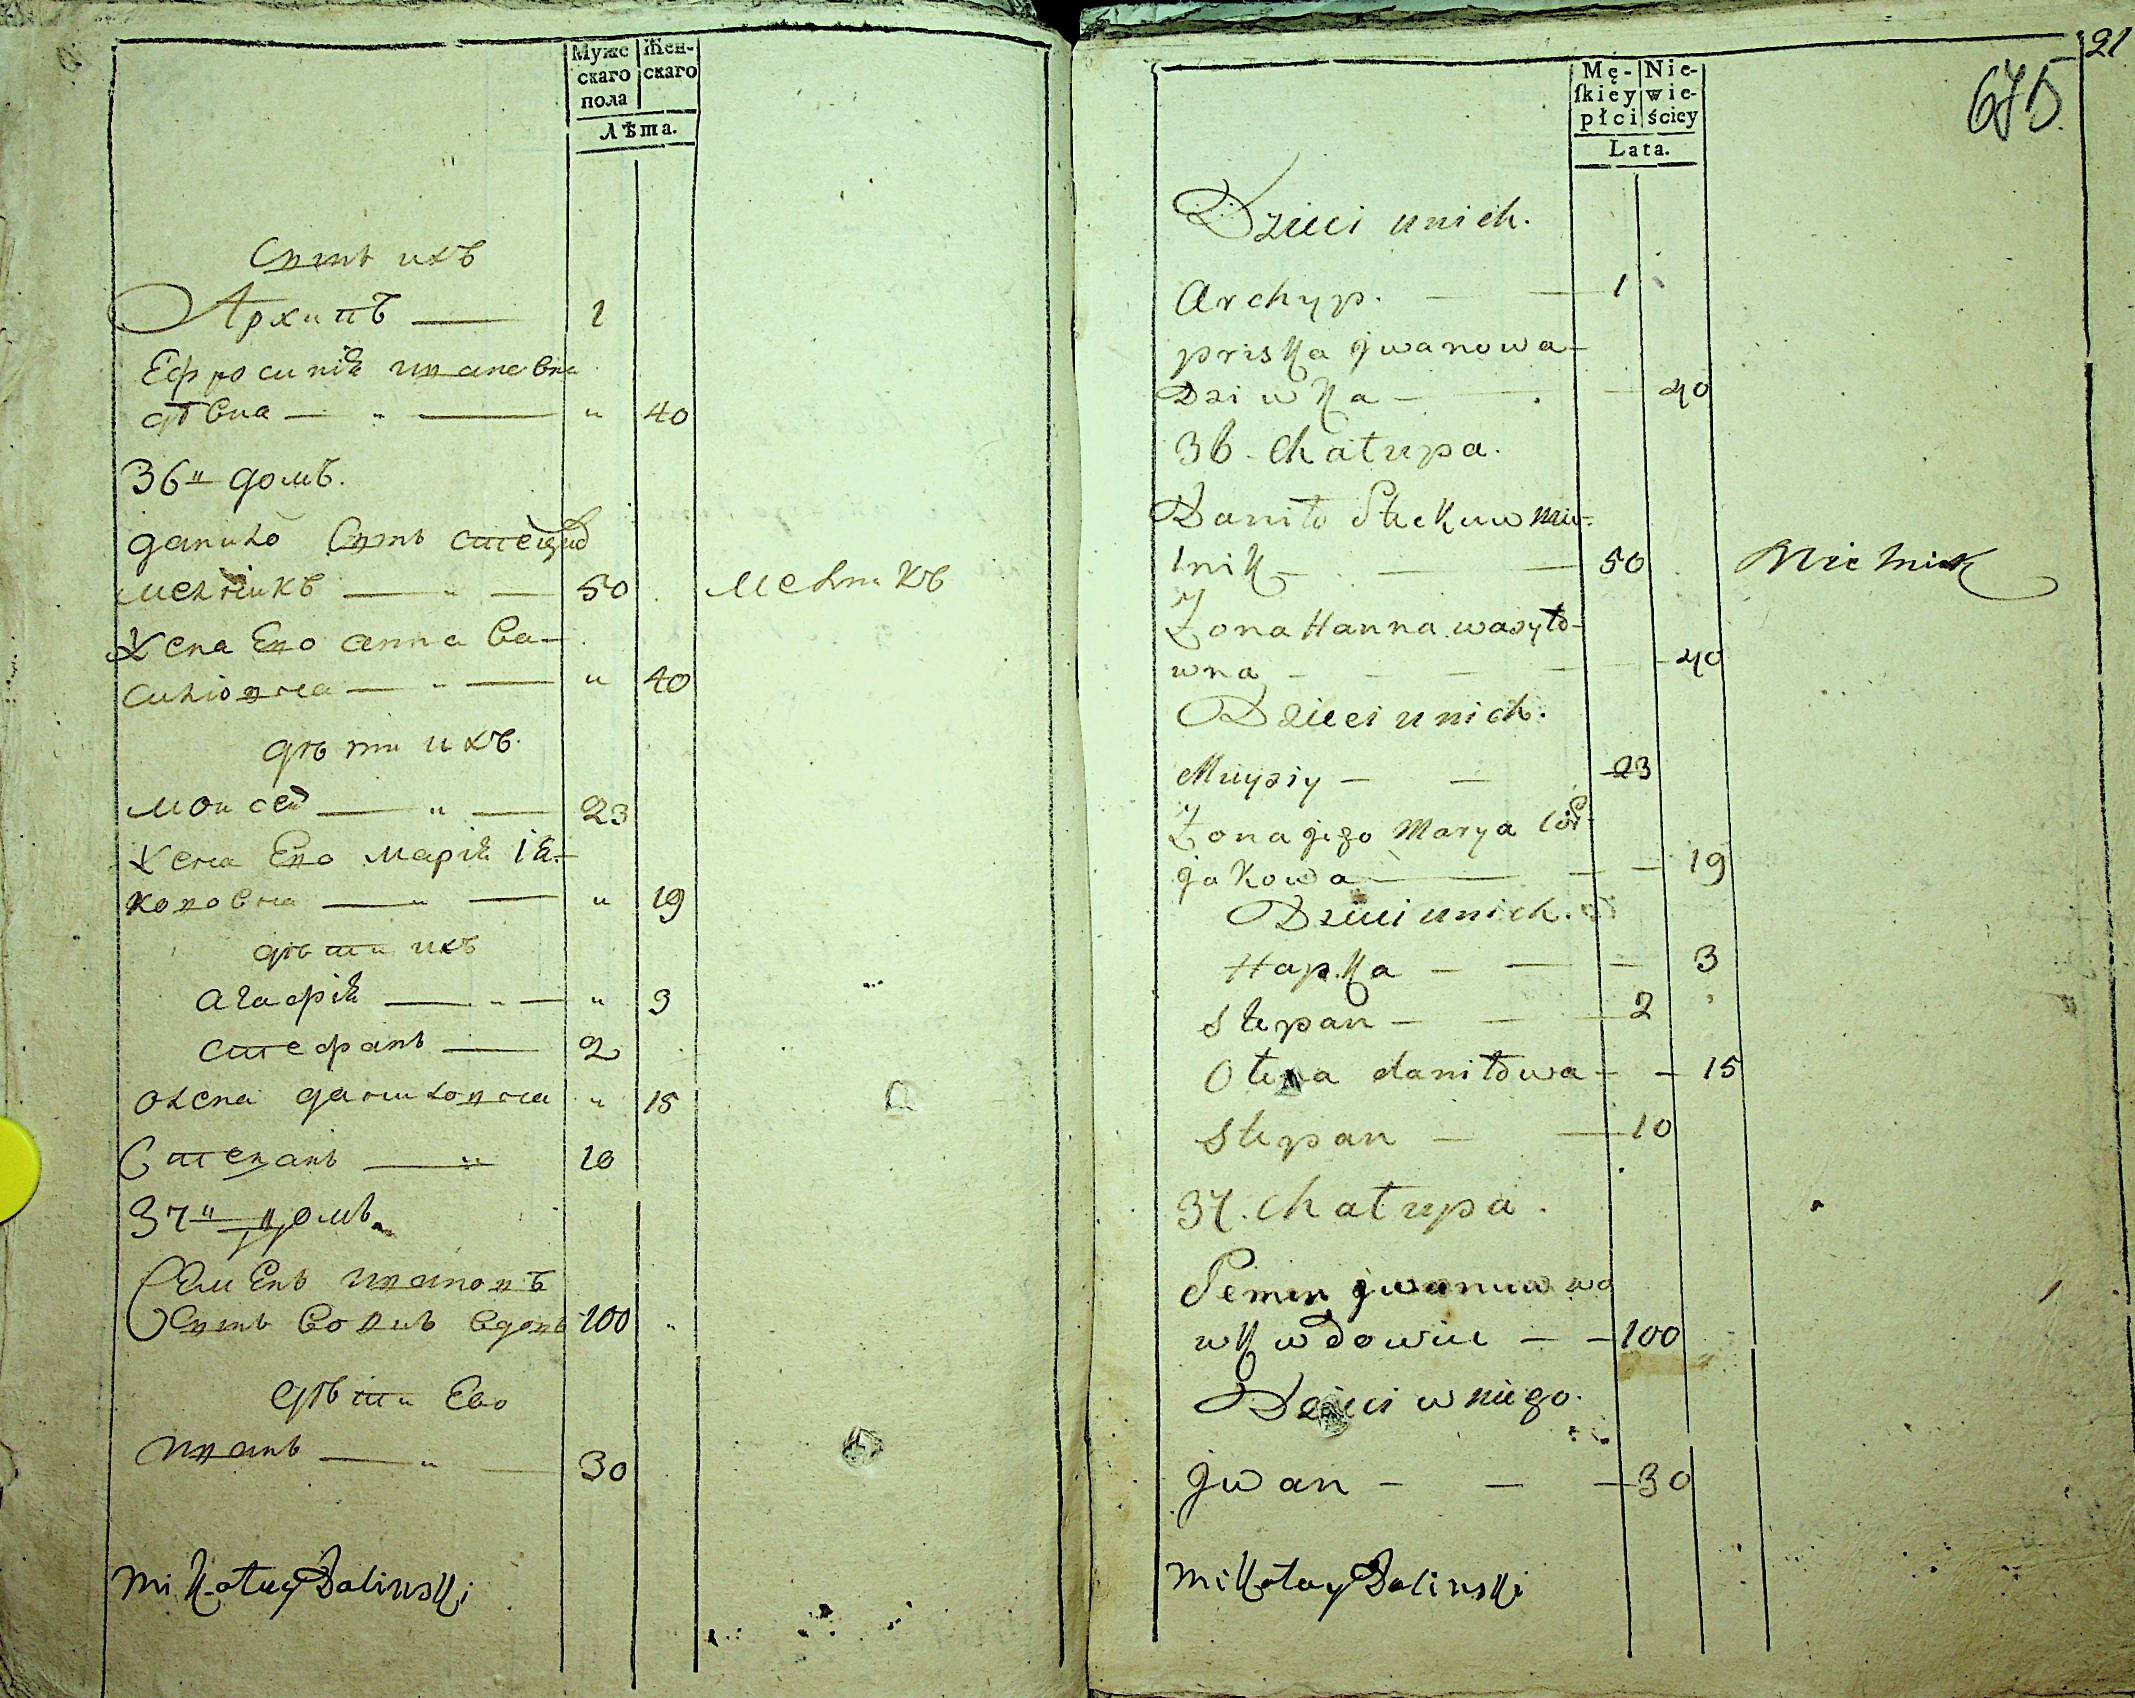 Муже
скаго
пола
Жен-
скаго
Лѣта.
Сынъ ихъ
Архипъ — 1
Ефросиния Иваневна
дѣвка — " — " 40
36й домъ.
данило Сынъ
мельникъ — " — 50 мельникъ
Жена Ево анна Ва-
силювна — " — " 40
дѣти ихъ.
моисей — " — 23
Жена Ево Мария Ia-
кововна — " — " 19
дѣти ихъ
Агафия — " — " 3
стефанъ — 2
олена даниловна " 15
Степанъ — " 10
37й домъ
Семенъ Ивановъ
Сынъ вдовъ 100 "
дѣти Ево
Иванъ — " — 30
Mikołay Dalinski
21
675.
Mę-
skiey
płci
Nie-
wie-
ściey
Lata.
Dzieci unich.
Archyp. — — 1
priska Jwanowa-
Dziwka — — — 40
36. Chałupa.
Daniło mie-
lnik — — — 50 Mielnik
Żona Hanna wasyło-
wna — — — — 40
Dzieci unich.
Muysiy — — 23
Żona jego Marya Cór
jakowa — — — 19
Dzieci unich.
Hapka — — — 3
Stepan — — — 2
Ołena daniłowa — — 15
Stepan — — 10
37. Chałupa.
Semen
wk wdowiec — — 100
Dzieci w niego.
Jwan — — — 30
Mikołay Dalinski